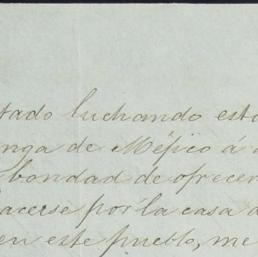 tado luchando est
nga de Méjico á
bondad de ofrecer
acerse por la casa d
en este pueblo, me